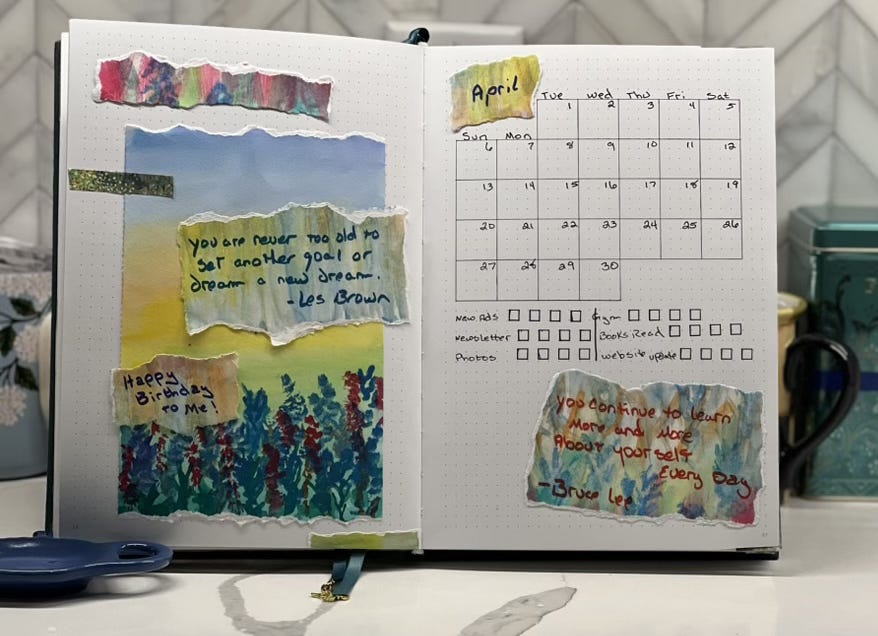 You are never too old to
set another goal or
dream a new dream.
-Les Brown
Happy
Birthday
to Me!
April
Tue Wed Thu Fri Sat
1 2 3 4 5
Sun Mon
6 7 8 9 10 11 12
13 14 15 16 17 18 19
20 21 22 23 24 25 26
27 28 29 30
New Ads Gym
Newsletter Books Read
Photos website update
You continue to learn
More and More
About yourself
Every Day
-Bruce Lee